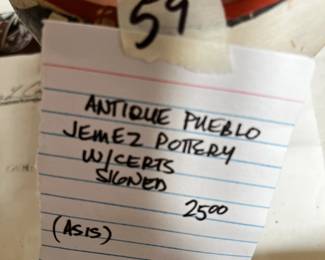 59
ANTIQUE PUEBLO
JEMEZ POTTERY
W/CERTS
SIGNED
25⁰⁰
(ASIS)